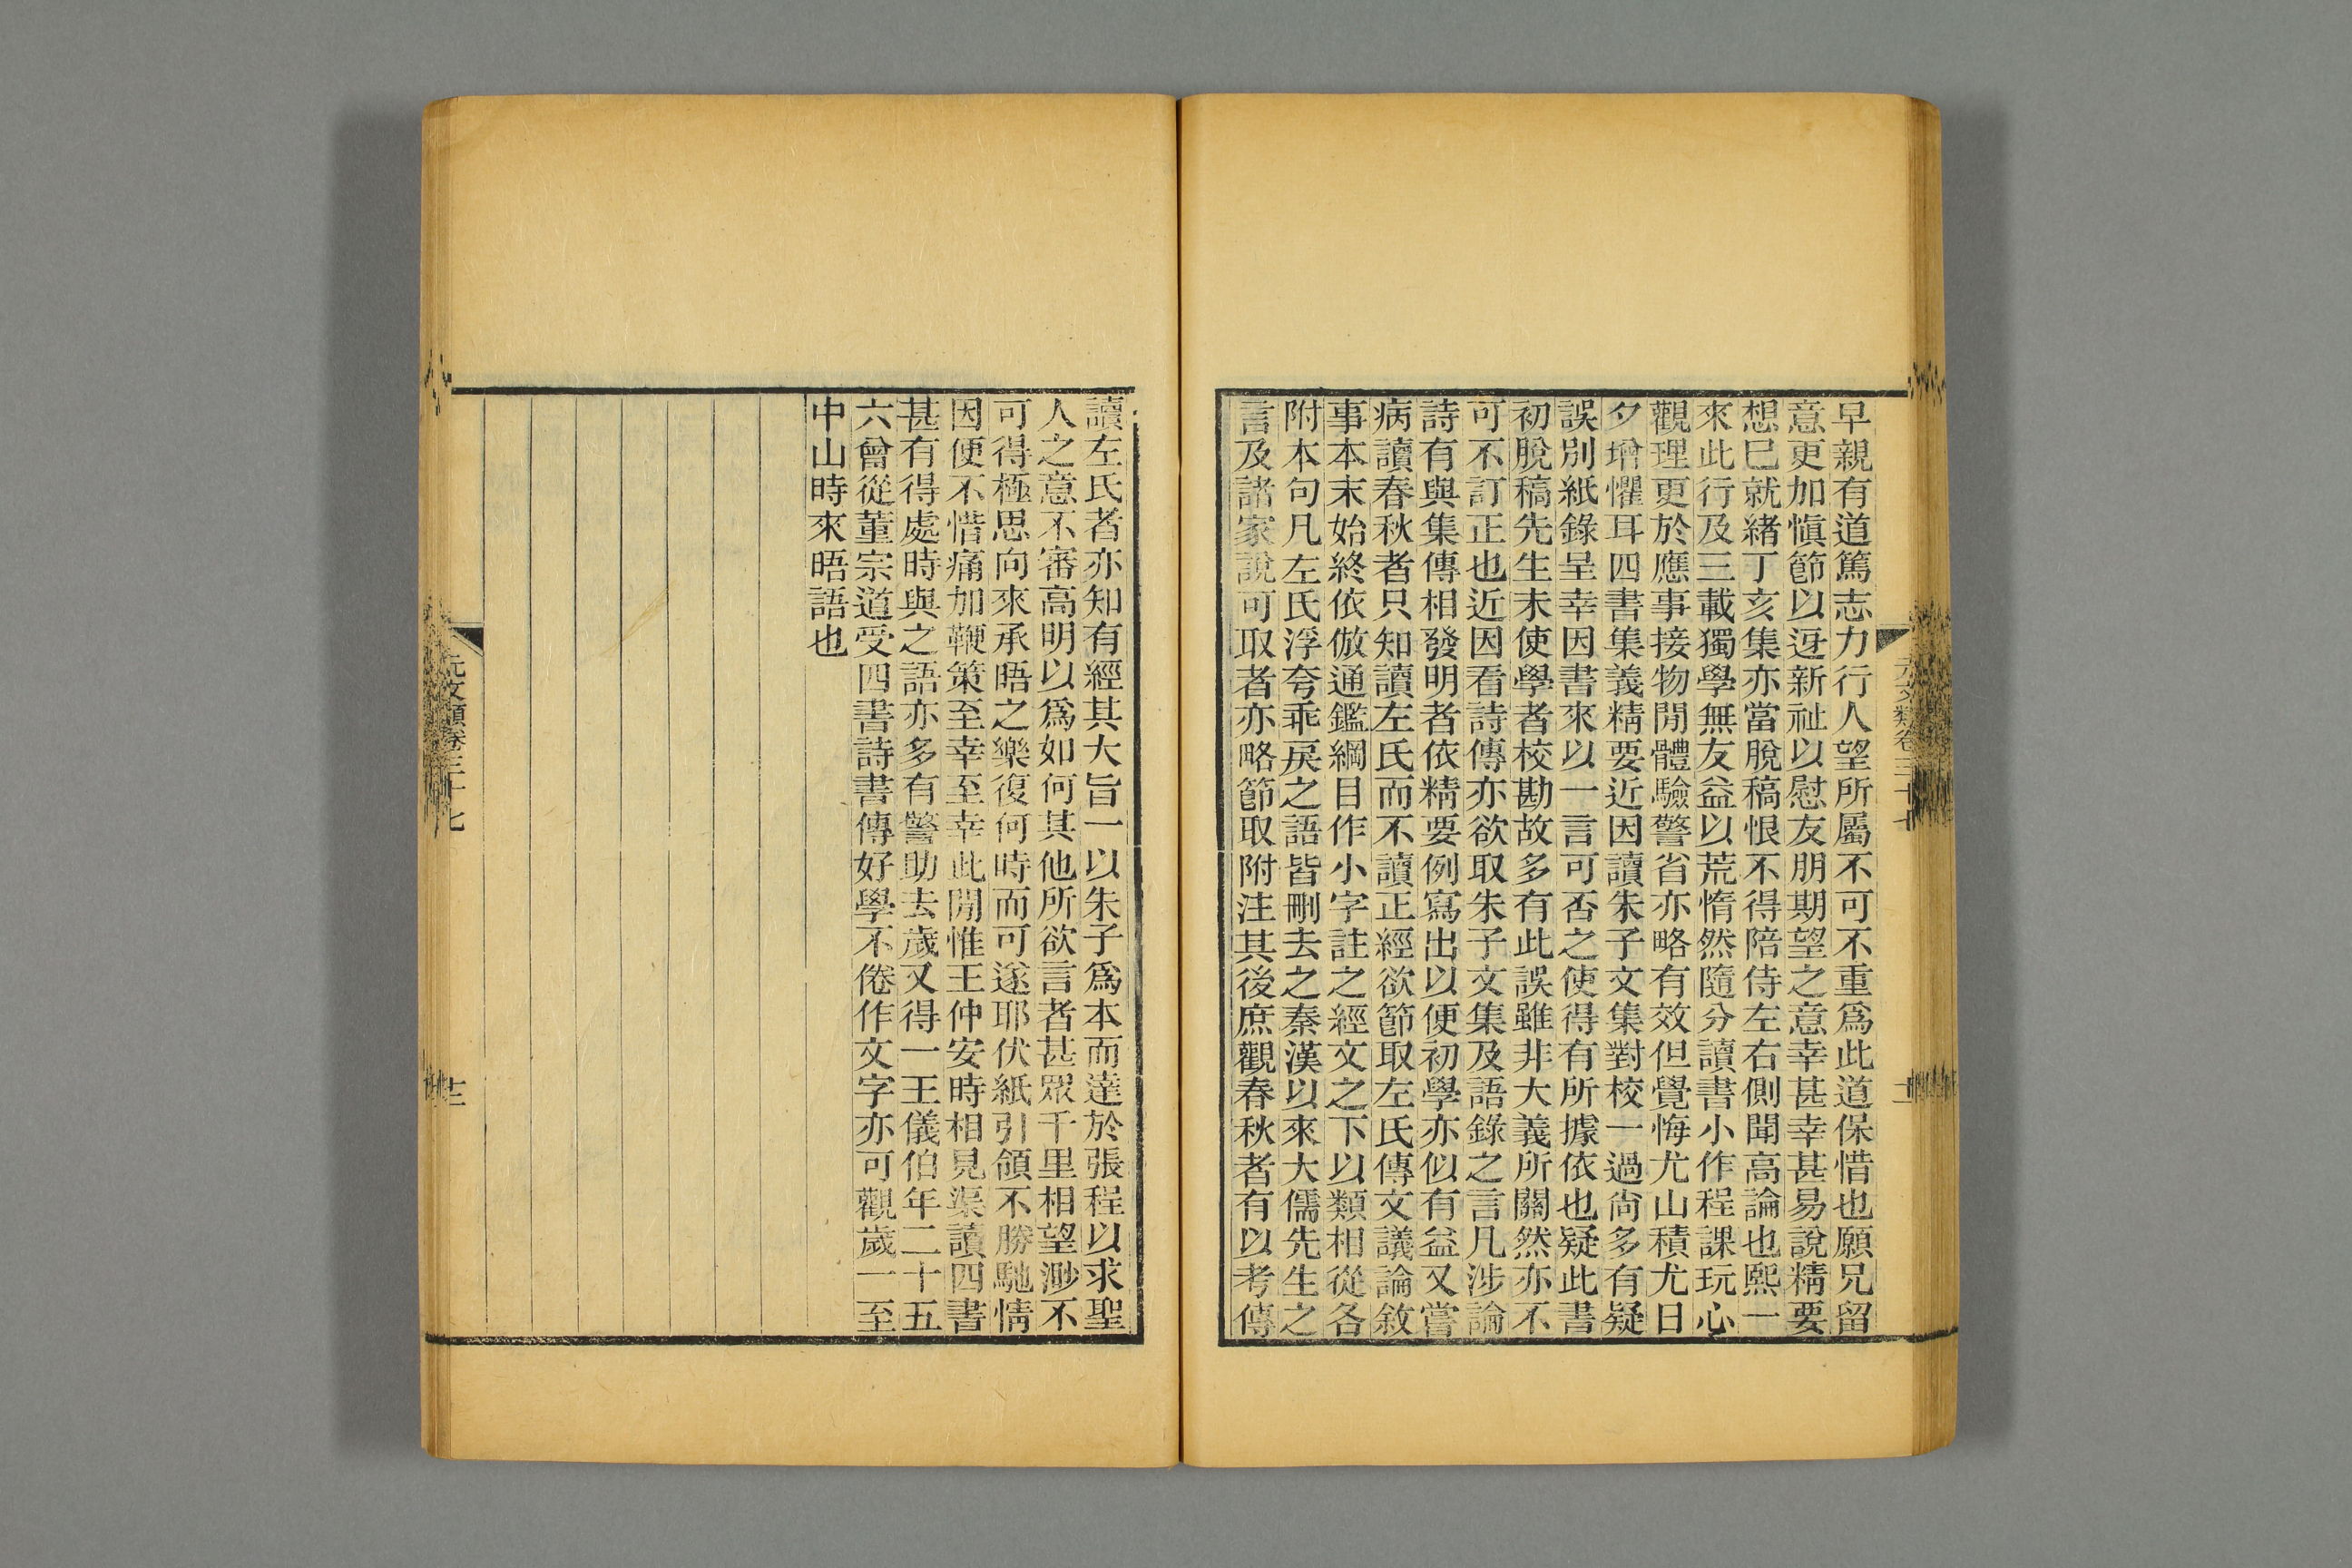 早親有道篤志力行人望所屬不可不重爲此道保惜也願兄留
意更加愼節以迓新祉以慰友朋期望之意幸甚幸甚易說精要
想巳就緒丁亥集亦當脫稿恨不得陪侍左右側聞高論也熙一
來此行及三載獨學無友益以荒惰然隨分讀書小作程課玩心
觀理更於應事接物閒體驗警省亦略有效但覺悔尤山積尤日
夕增懼耳四書集義精要近因讀朱子文集對校一過尙多有疑
誤別紙錄呈幸因書來以一言可否之使得有所據依也疑此書
初脫稿先生未使學者校勘故多有此誤雖非大義所關然亦不
可不訂正也近因看詩傳亦欲取朱子文集及語錄之言凡涉論
詩有與集傳相發明者依精要例寫出以便初學亦似有益又嘗
病讀春秋者只知讀左氏而不讀正經欲節取左氏傳文議論敘
事本末始終依倣通鑑綱目作小字註之經文之下以類相從各
附本句凡左氏浮夸乖戾之語皆刪去之秦漢以來大儒先生之
言及諸家說可取者亦略節取附注其後庶觀春秋者有以考傳
讀左氏者亦知有經其大旨一以朱子爲本而達於張程以求聖
人之意不審高明以爲如何其他所欲言者甚眾千里相望渺不
可得極思向來承晤之樂復何時而可遂耶伏紙引領不勝馳情
因便不惜痛加鞭策至幸至幸此閒惟王仲安時相見渠讀四書
甚有得處時與之語亦多有警助去歲又得一王儀伯年二十五
六曾從董宗道受四書詩書傳好學不倦作文字亦可觀歲一至
中山時來晤語也
元文類卷三十七